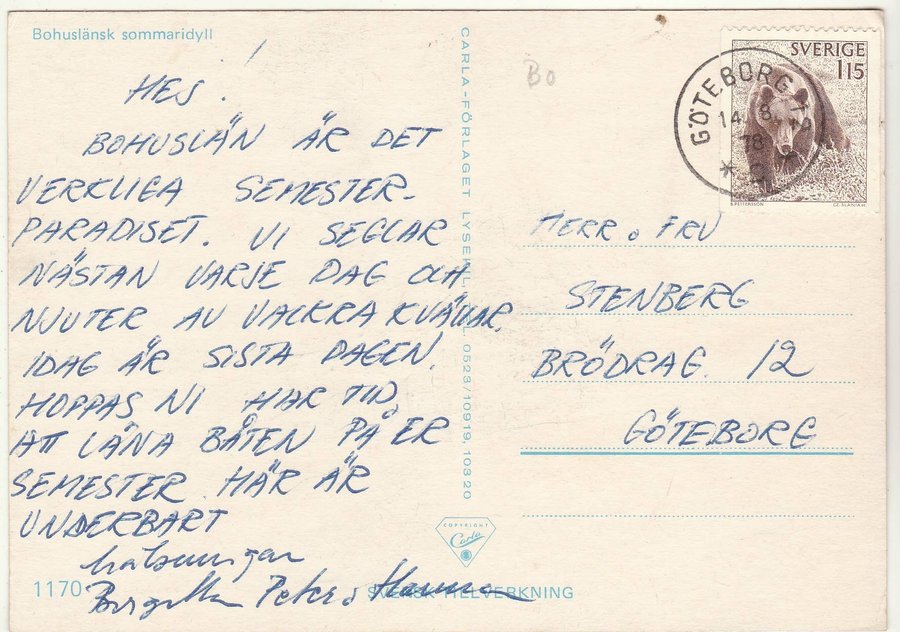 Bohuslänsk sommaridyll
HEJ!
BOHUSLÄN ÄR DET
VERKLIGA SEMESTER-
PARADISET. VI SEGLAR
NÄSTAN VARJE DAG OCH
NJUTER AV VACKRA KVÄLLAR.
IDAG ÄR SISTA DAGEN.
HOPPAS NI HAR TID
ATT LÅNA BÅTEN PÅ ER
SEMESTER. HÄR ÄR
UNDERBART
hälsningar
Birgitta Peter o Hanna
1170
SVENSK HELVERKNING
CARLA-FÖRLAGET LYSEKIL, 0523/10919, 10320
COPYRIGHT
Carla
Bo
GÖTEBORG 1
14. 8.
78
SVERIGE
115
B.PETTERSSON
CZ.SLANIA SC.
HERR o FRU
STENBERG
BRÖDRAG. 12
GÖTEBORG